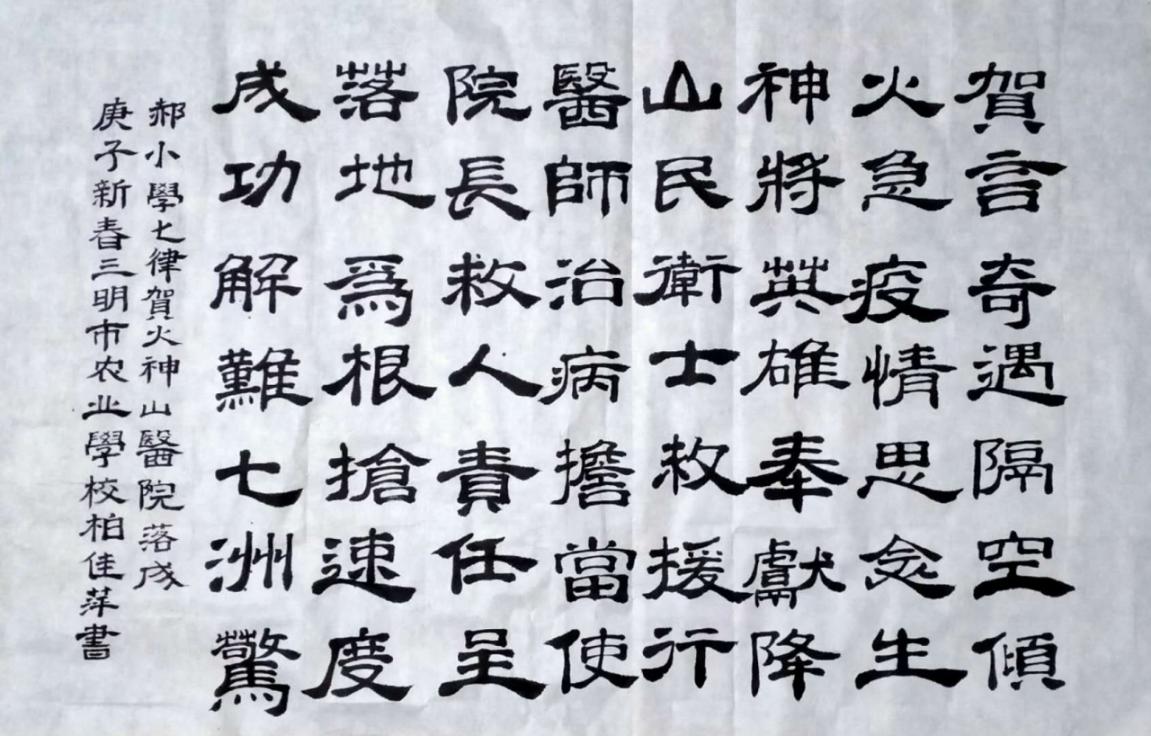 賀言奇遇隔空傾
火急疫情思念生
神將英雄奉獻降
山民衛士救援行
醫師治病擔當使
院長救人責任呈
落地為根搶速度
成功解難七洲驚
郝小學七律賀火神山醫院落成
庚子新春三明市农业學校柏佳萍書